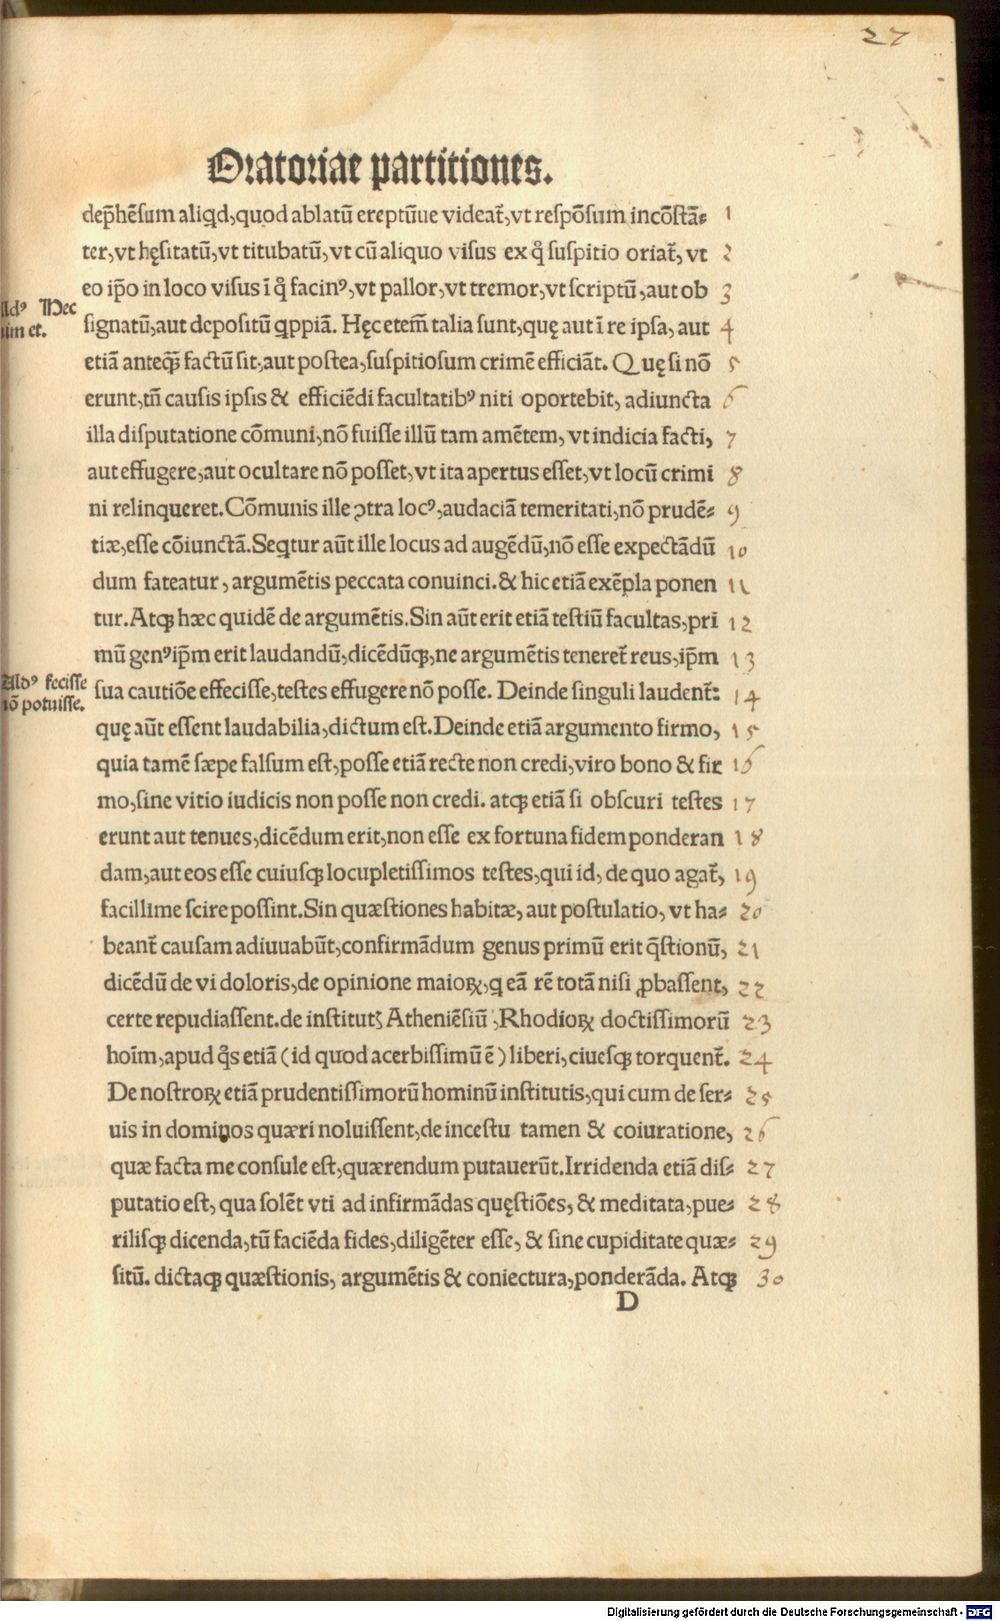 27
Oratoriae partitiones.
dep̃hẽsum aliqd,quod ablatũ ereptũue videat̃,vt respõsum incõstã⸗ 1
ter,vt hęsitatũ,vt titubatũ,vt cũ aliquo visus ex q̃ suspitio oriat̃, vt 2
eo ip̃o in loco visus ĩ q̃ facinꝰ,vt pallor,vt tremor,vt scriptũ,aut ob 3
signatũ,aut depositũ qppiã. Hęc etem̃ talia sunt,quę aut ĩ re ipsa, aut 4
Aldꝰ Nec
nim et.
etiã anteq̃ȝ factũ sit,aut postea,suspitiosum crimẽ efficiãt. Quę si nõ 5
erunt,tñ causis ipsis & efficiẽdi facultatibꝰ niti oportebit, adiuncta 6
illa disputatione cõmuni,nõ fuisse illũ tam amẽtem, vt indicia facti, 7
aut effugere,aut ocultare nõ posset,vt ita apertus esset,vt locũ crimi 8
ni relinqueret.Cõmunis ille ꝯtra locꝰ,audaciã temeritati,nõ prudẽ⸗ 9
tiæ,esse cõiunctã.Seqtur aũt ille locus ad augẽdũ,nõ esse expectãdũ 10
dum fateatur, argumẽtis peccata conuinci.& hic etiã exẽpla ponen 11
tur.Atqȝ hæc quidẽ de argumẽtis.Sin aũt erit etiã testiũ facultas,pri 12
mũ genꝰ ip̃m erit laudandũ,dicẽdũqȝ,ne argumẽtis teneret̃ reus,ip̃m 13
sua cautiõe effecisse,testes effugere nõ posse. Deinde singuli laudent̃: 14
Aldꝰ fecisse
nõ potuisse.
quę aũt essent laudabilia,dictum est.Deinde etiã argumento firmo, 15
quia tamẽ sæpe falsum est,posse etiã recte non credi,viro bono & fir 16
mo,sine vitio iudicis non posse non credi. atqȝ etiã si obscuri testes 17
erunt aut tenues,dicẽdum erit,non esse ex fortuna fidem ponderan 18
dam,aut eos esse cuiusqȝ locupletissimos testes,qui id, de quo agat̃, 19
facillime scire possint.Sin quæstiones habitæ, aut postulatio, vt ha⸗ 20
beant̃ causam adiuuabũt,confirmãdum genus primũ erit q̃stionũ, 21
dicẽdũ de vi doloris,de opinione maioꝝ,q eã rẽ totã nisi ꝓbassent, 22
certe repudiassent.de institutȝ Atheniẽsiũ ,Rhodioꝝ doctissimorũ 23
hoĩm,apud q̃s etiã (id quod acerbissimũ ẽ) liberi,ciuesqȝ torquent̃. 24
De nostroꝝ etiã prudentissimorũ hominũ institutis,qui cum de ser⸗ 25
uis in dominos quæri noluissent,de incestu tamen & coiuratione, 26
quæ facta me consule est,quærendum putauerũt.Irridenda etiã dis⸗ 27
putatio est, qua solẽt vti ad infirmãdas quęstiões, & meditata,pue⸗ 28
rilisqȝ dicenda,tũ faciẽda fides,diligẽter esse, & sine cupiditate quæ⸗ 29
sitũ. dictaqȝ quæstionis, argumẽtis & coniectura,ponderãda. Atqȝ 30
D
Digitalisierung gefördert durch die Deutsche Forschungsgemeinschaft - DFG